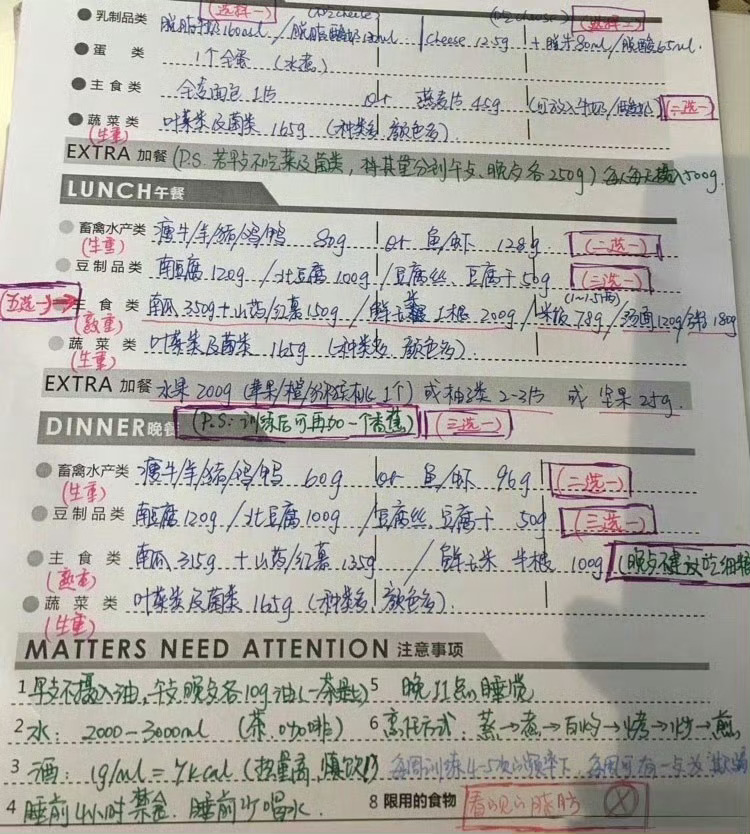 (选择一) (选择二)
乳制品类 脱脂牛奶160ml/脱脂酸奶130ml cheese 12.5g + 脱牛80ml/脱酸65ml.
蛋 类 1个全蛋 (水煮)
主食类 全麦面包1片 or 燕麦片 45g (可放入牛奶/酸奶) (二选一)
蔬菜类 叶菜类及菌类 165g (种类多, 颜色多)
(生重)
EXTRA 加餐 (P.S. 若早上不吃菜及菌类, 将其量分到午上、晚上各250g) 每天摄入500g.
LUNCH 午餐
畜禽水产类 瘦牛/羊/猪/鸡/鸭 80g or 鱼/虾 128g (二选一)
(生重)
豆制品类 南豆腐120g/北豆腐100g/豆腐丝、豆腐干50g (三选一)
(1~1.5两)
(五选一)→ 主食类 南瓜350g+山药/红薯150g/鲜玉米1根 200g/米饭78g/汤面120g/ 180g
(熟重)
蔬菜类 叶菜类及菌类 165g (种类多, 颜色多).
(生重)
EXTRA 加餐 水果200g (苹果/橙/ 1个) 或柚子类 2-3片 或 坚果25g.
DINNER 晚餐 (P.S: 训练后可再加一个香蕉) (三选一)
畜禽水产类 瘦牛/羊/猪/鸡/鸭 60g or 鱼/虾 96g (二选一)
(生重)
豆制品类 南豆腐120g/北豆腐100g/豆腐丝、豆腐干 50g (三选一)
主食类 南瓜315g+山药/红薯135g / 鲜玉米 半根 100g (晚上不建议吃细粮
(熟重)
蔬菜类 叶菜类及菌类 165g (种类多, 颜色多).
(生重)
MATTERS NEED ATTENTION 注意事项
1 早上不摄入油, 午上晚上各10g油(一茶匙) 5 晚11点睡觉
2 水: 2000-3000ml (茶、咖啡) 6 烹饪方式: 蒸→煮→白灼→烤→炒→煎
3 酒: 1g/ml=7kcal (热量高, 慎饮) 每周训练4-5次的频率下, 每周可有一
4 睡前4小时禁食. 睡前少喝水. 8 限用的食物 看得见的脂肪 ⓧ